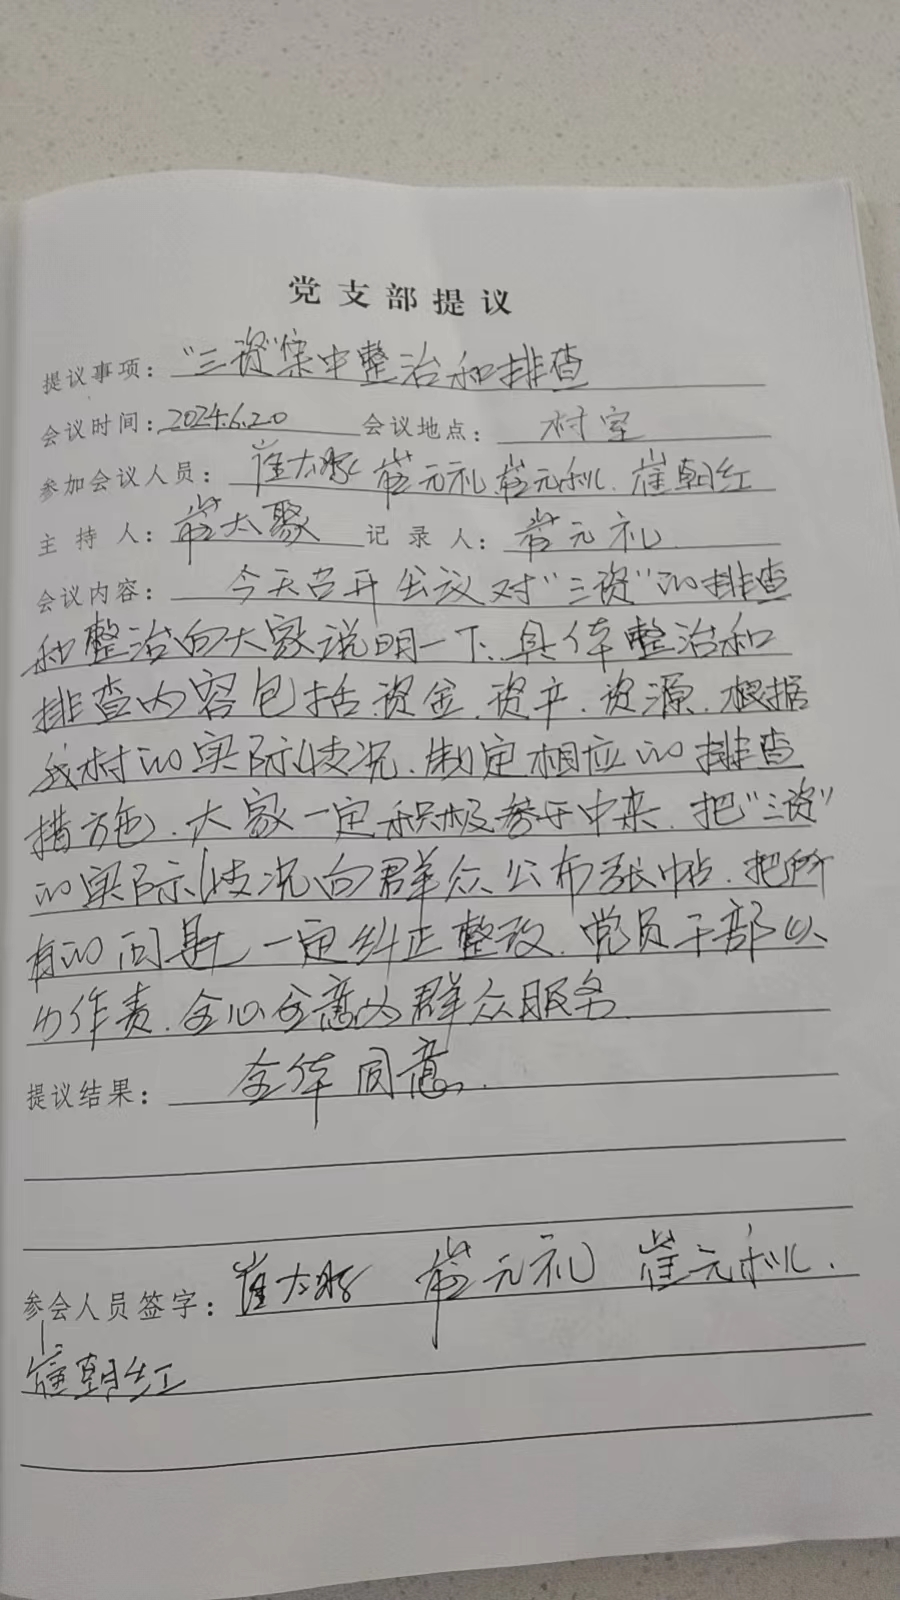 党支部提议
提议事项：“三资”集中整治和排查
会议时间：2024.6.20 会议地点：村室
参加会议人员：崔太聚 崔元礼 崔元利 崔朝红
主持人：崔太聚 记录人：崔元礼
会议内容：今天召开会议对“三资”的排查
和整治向大家说明一下、具体整治和
排查内容包括资金、资产、资源、根据
我村的实际情况、制定相应的排查
措施、大家一定积极参于中来、把“三资”
的实际情况向群众公布张帖、把所
有的问题一定纠正整改、党员干部以
为作责、全心全意为群众服务
提议结果：全体同意.
参会人员签字：崔太聚 崔元礼 崔元利.
崔朝红